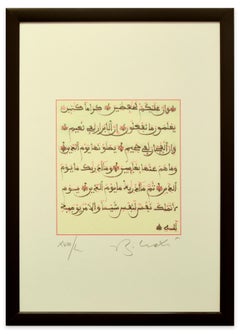 وإن عليكم لحفظين كراما كتبين
يعلمون ما تفعلون إن الأبرار لفي نعيم
وإن الفجار لفي جحيم يصلونها يوم الدين
وما هم عنها بغايبين وما أدريك ما يوم
الدين ثم ما أدريك ما يوم الدين يوم
لا تملك نفس لنفس شيئا والأمر يومئذ
لله
XVIII/L